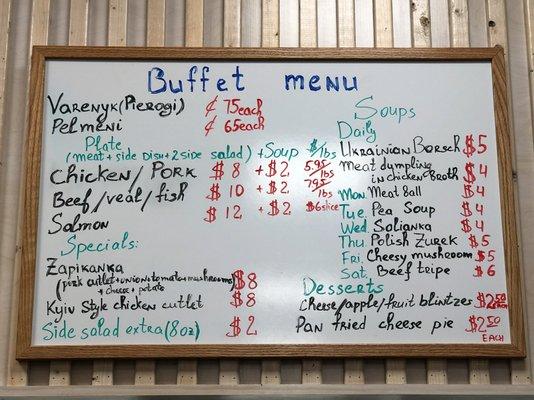 Buffet menu
Varenyk (Pierogi) ¢ 75 each
Pelmeni ¢ 65 each
Plate
(meat + side dish + 2 side salad) + Soup $/lbs
Chicken / Pork $ 8 + $2 5.95/lbs
Beef / veal / fish $ 10 + $2 7.95/lbs
Salmon $ 12 + $2 $6 slice
Specials:
Zapikanka
(pork cutlet + unions + tomato + mushrooms) $8
+ cheese + potato
Kyiv Style chicken cutlet $8
Side salad extra (8oz) $ 2
Soups
Daily
Ukrainian Borsch $5
Meat dumpling
in chicken broth $4
Mon. Meat Ball $4
Tue. Pea Soup $4
Wed. Solianka $4
Thu Polish Zurek $5
Fri. Cheesy mushroom $5
Sat. Beef tripe $6
Desserts
Cheese/apple/fruit blintzes $2.50 each
Pan fried cheese pie $2.50
each